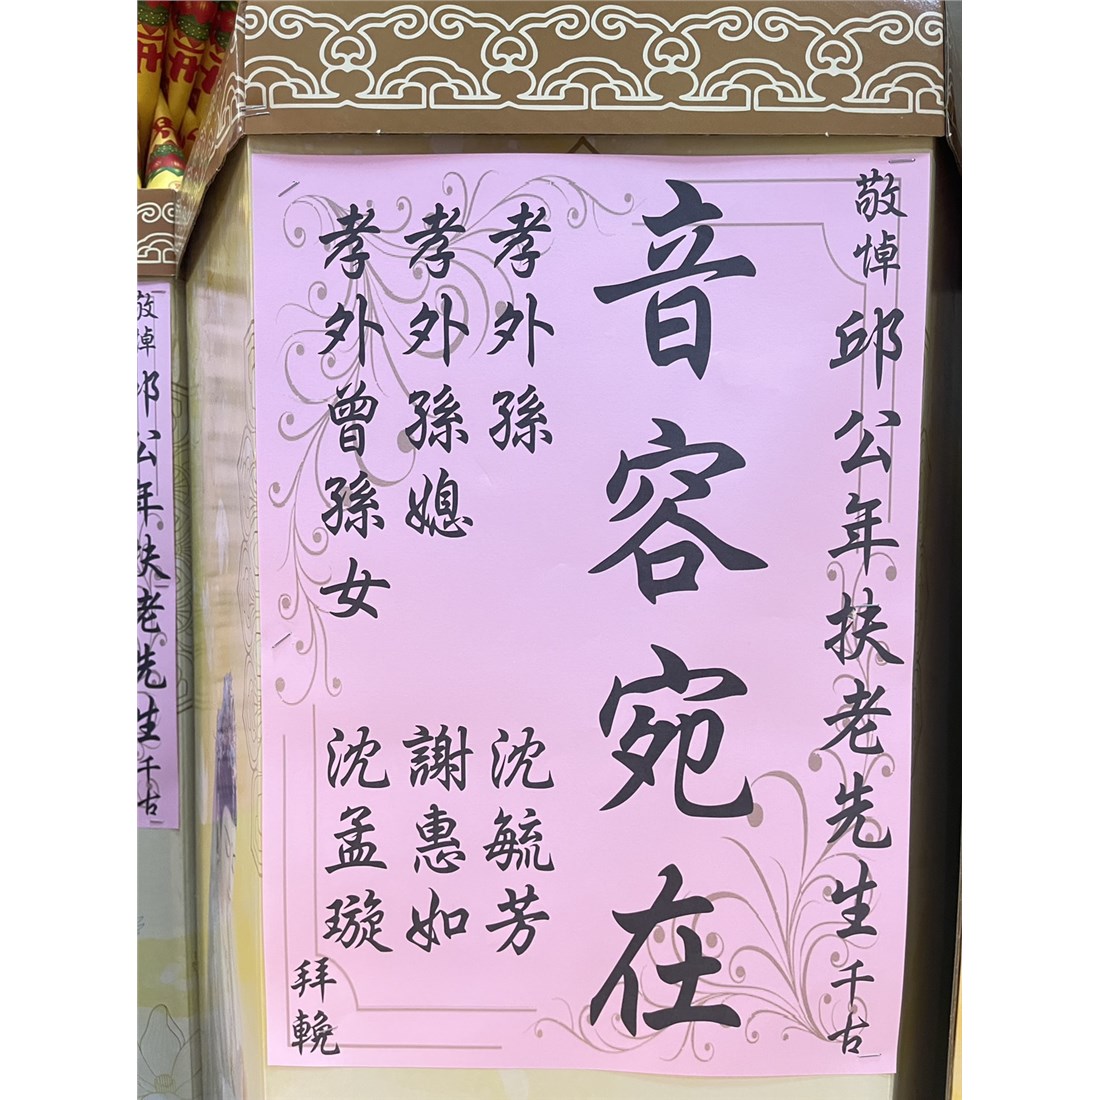 敬悼邱公年扶老先生千古
音容宛在
孝外孫 沈毓芳
孝外孫媳 謝惠如
孝外曾孫女 沈孟璇
拜輓
敬悼邱公年扶老先生千古